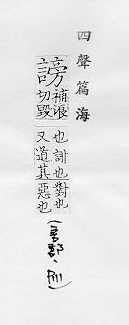 四聲篇海
謗補浪切毀
也誹也對也
又道其惡也
(言部、